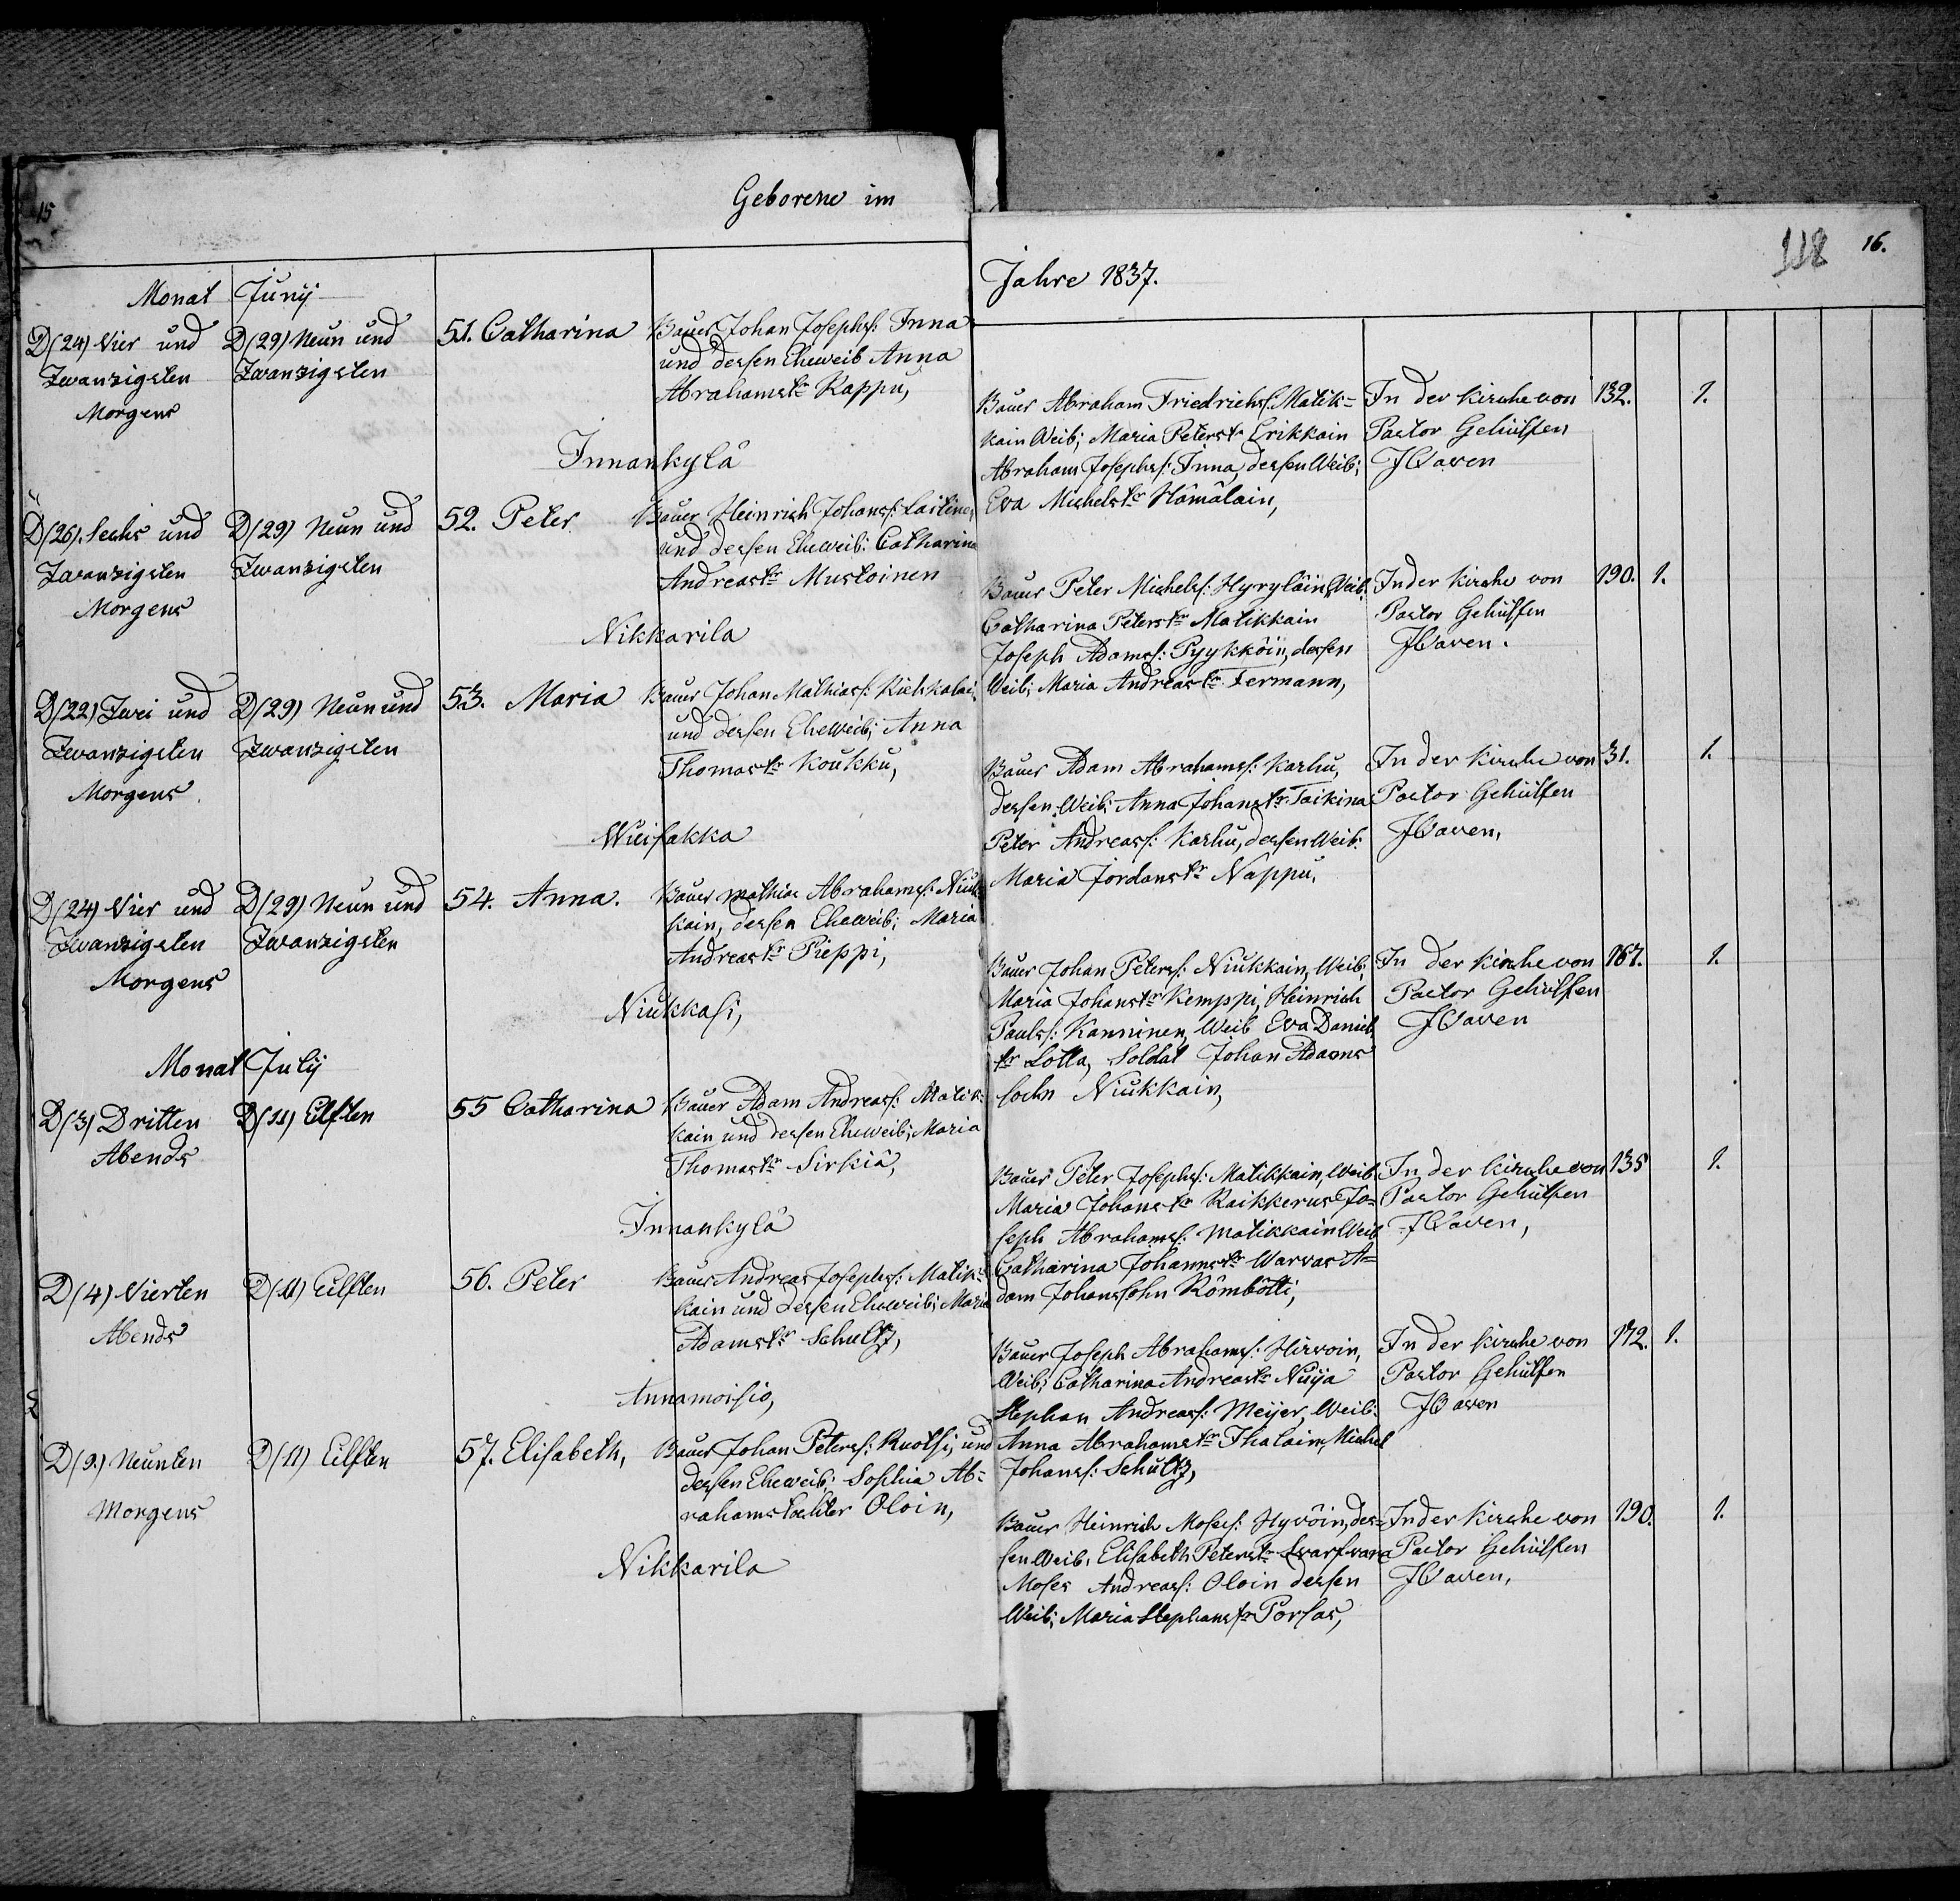 15
Geborene im
Monat Junij
D(24) Vier und
Zwanzigsten
Morgens
D(29) Neun und
Zwanzigsten
51. Catharina
Bauer Johan Josephs: Inna
und dessen Eheweib Anna
Abrahamstr Kappu,
Innankylä
D(26). Sechs und
Zwanzigsten
Morgens
D(29) Neun und
Zwanzigsten
52. Peter
Bauer Heinrich Johans:
und dessen Eheweib: Catharina
Andreastr Mustoinen
Nikkarila
D(22) Zwei und
Zwanzigsten
Morgens
D(29) Neun und
Zwanzigsten
53. Maria
Bauer Johan Mathias:
und dessen Eheweib; Anna
Thomastr Koukku,
Wuisakka
D(24) Vier und
Zwanzigsten
Morgens
D(29) Neun und
Zwanzigsten
54. Anna.
Bauer Mathias Abrahams: Niuk=
kain, dessen Eheweib; Maria
Andreastr Pieppi,
Niukkasi,
Monat Julij
D(3) Dritten
Abends
D(11) Eilften
55 Catharina
Bauer Adam Andreas: Matik=
kain und dessen Eheweib; Maria
Thomastr Sirkiä,
Innankylä
D(4) Vierten
Abends
D(11) Eilften
56. Peter
Bauer Andreas Josephs: Matik=
kain und dessen Eheweib; Maria
Adamstr Schultz,
Annamoisio,
D(9.) Neunten
Morgens
D(11) Eilften
57. Elisabeth,
Bauer Johan Peters: Ruotsi, und
dessen Eheweib; Sophia Ab=
rahamstochter Oloin,
Nikkarila
118 16.
Jahre 1837.
Bauer Abraham Friedrichs: Matik=
kain Weib; Maria Peterstr Erikkain
Abraham Josephs: Inna, dessen Weib;
Eva Michelstr Hämäläin,
In der Kirche von
Pastor Gehülfen
132. 1.
Bauer Peter Michels: Hyryläin, Weib.
Catharina Peterstr Matikkain
Joseph Adams: Pyykköin, dessen
Weib; Maria Andreastr Fermann,
In der Kirche von
Pastor Gehülfen
190. 1.
Bauer Adam Abrahams: Karhu,
dessen Weib; Anna Johanstr Taikina
Peter Andreas: Karhu, dessen Weib:
Maria Jordanstr Nappu.
In der Kirche von
Pastor Gehülfen
31. 1.
Bauer Johan Peters: Niukkain, Weib;
Maria Johanstr Kemppi, Heinrich
Pauls: Kanninen, Weib Eva Daniels
tr Lotta, Soldat Johan Adams
sohn Niukkain,
In der Kirche von
Pastor Gehülfen
167. 1.
Bauer Peter Josephs: Matikkain, Weib
Maria Johanstr Raikkerus Jo=
seph Abrahams: Matikkain Weib
Catharina Johannstr Warvas A=
dam Johanssohn Römbötti,
In der Kirche von
Pastor Gehülfen
135 1.
Bauer Joseph Abrahams: Hirvoin,
Weib; Catharina Andreastr Nuija
Stephan Andreas: Meijer, Weib:
Anna Abrahamstr Ihalain, Michel
Johans: Schultz,
In der Kirche von
Pastor Gehülfen
172. 1.
Bauer Heinrich Moses: Hyvöin, des=
sen Weib, Elisabeth Peterstr
Moses Andreas: Oloin dessen
Weib; Maria Stephanstr Porsas,
In der Kirche von
Pastor Gehülfen
190. 1.